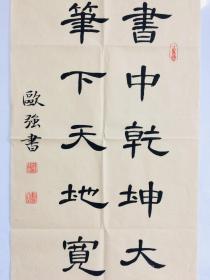 書中乾坤大
筆下天地寬
歐強書